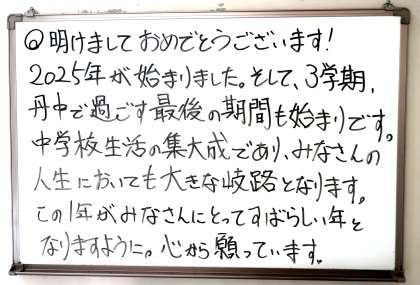 ◎明けましておめでとうございます!
2025年が始まりました。そして、3学期,
丹中で過ごす最後の期間も始まりです。
中学校生活の集大成であり、みなさんの
人生においても大きな岐路となります。
この1年がみなさんにとってすばらしい年と
なりますように。心から願っています。